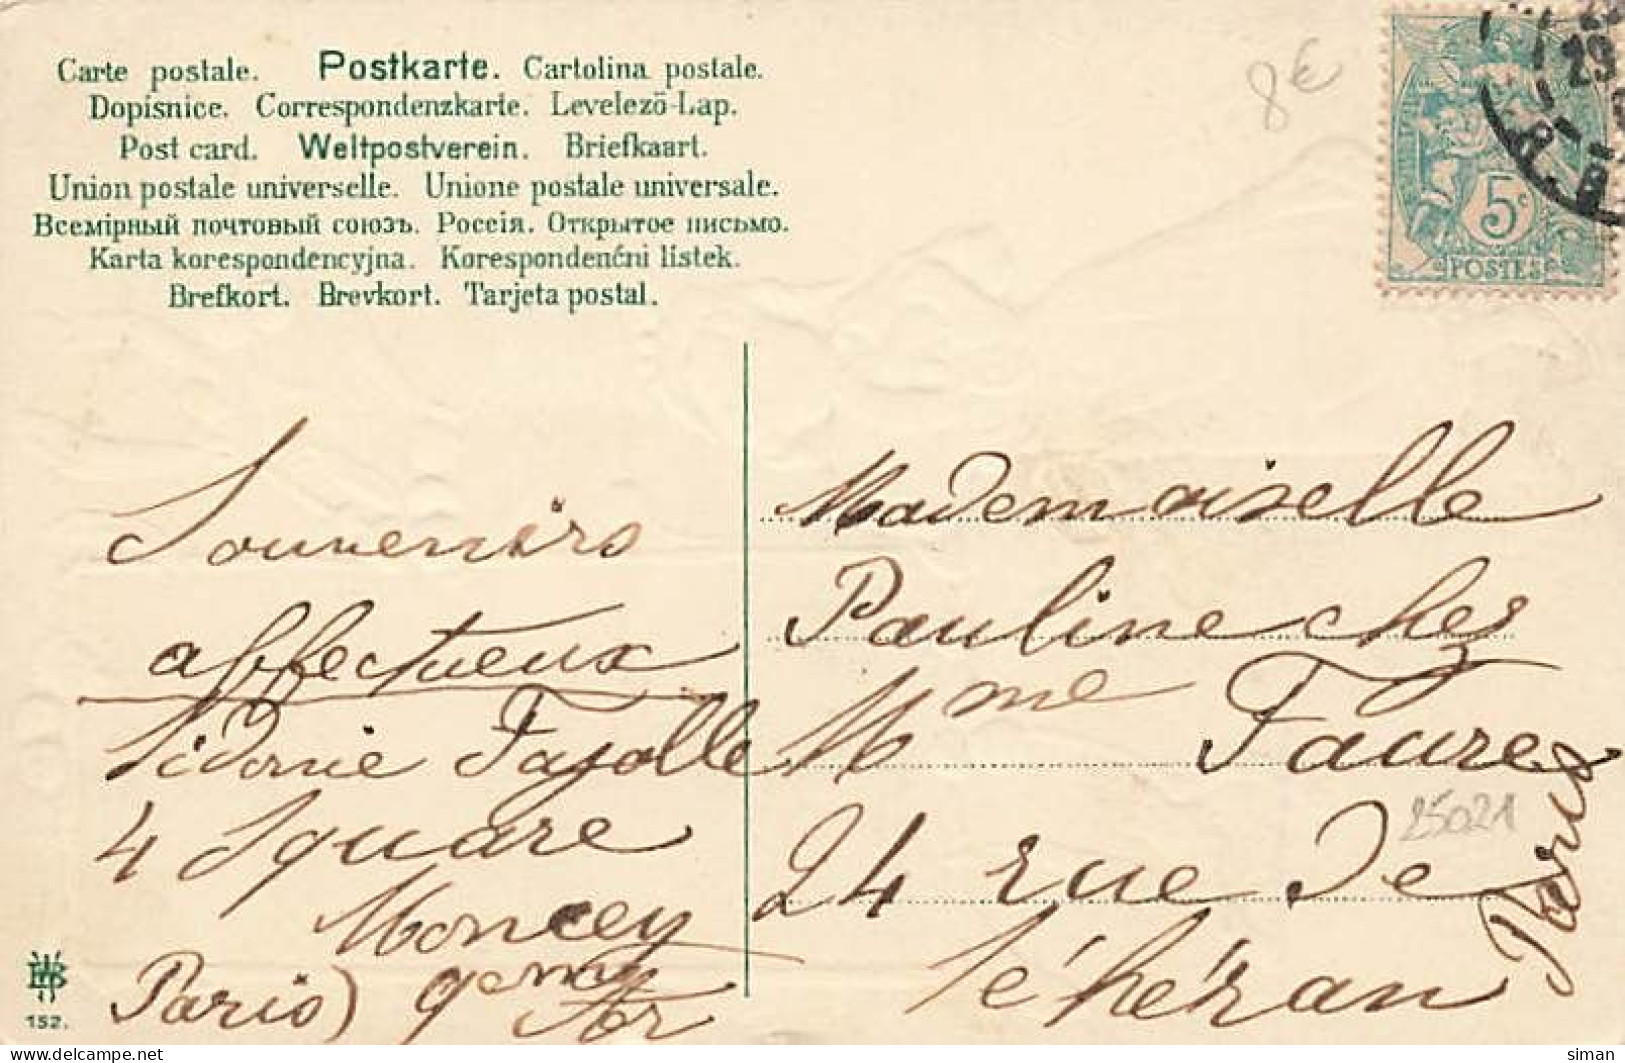 Carte postale. Postkarte. Cartolina postale.
Dopisnice. Correspondenzkarte. Levelező-Lap.
Post card. Weltpostverein. Briefkaart.
Union postale universelle. Unione postale universale.
Всемірный почтовый союзъ. Россія. Открытое письмо.
Karta korespondencyjna. Korespondenční lístek.
Brefkort. Brevkort. Tarjeta postal.
8€
29
5c
POSTES
Souvenirs
affectueux
Sidonie Fajolle
4 Square
Moncey
Paris) 9eme Arr
Mademoiselle
Pauline chez
Mme Faure
24 rue de
Téhéran
Paris
25021
152.
siman